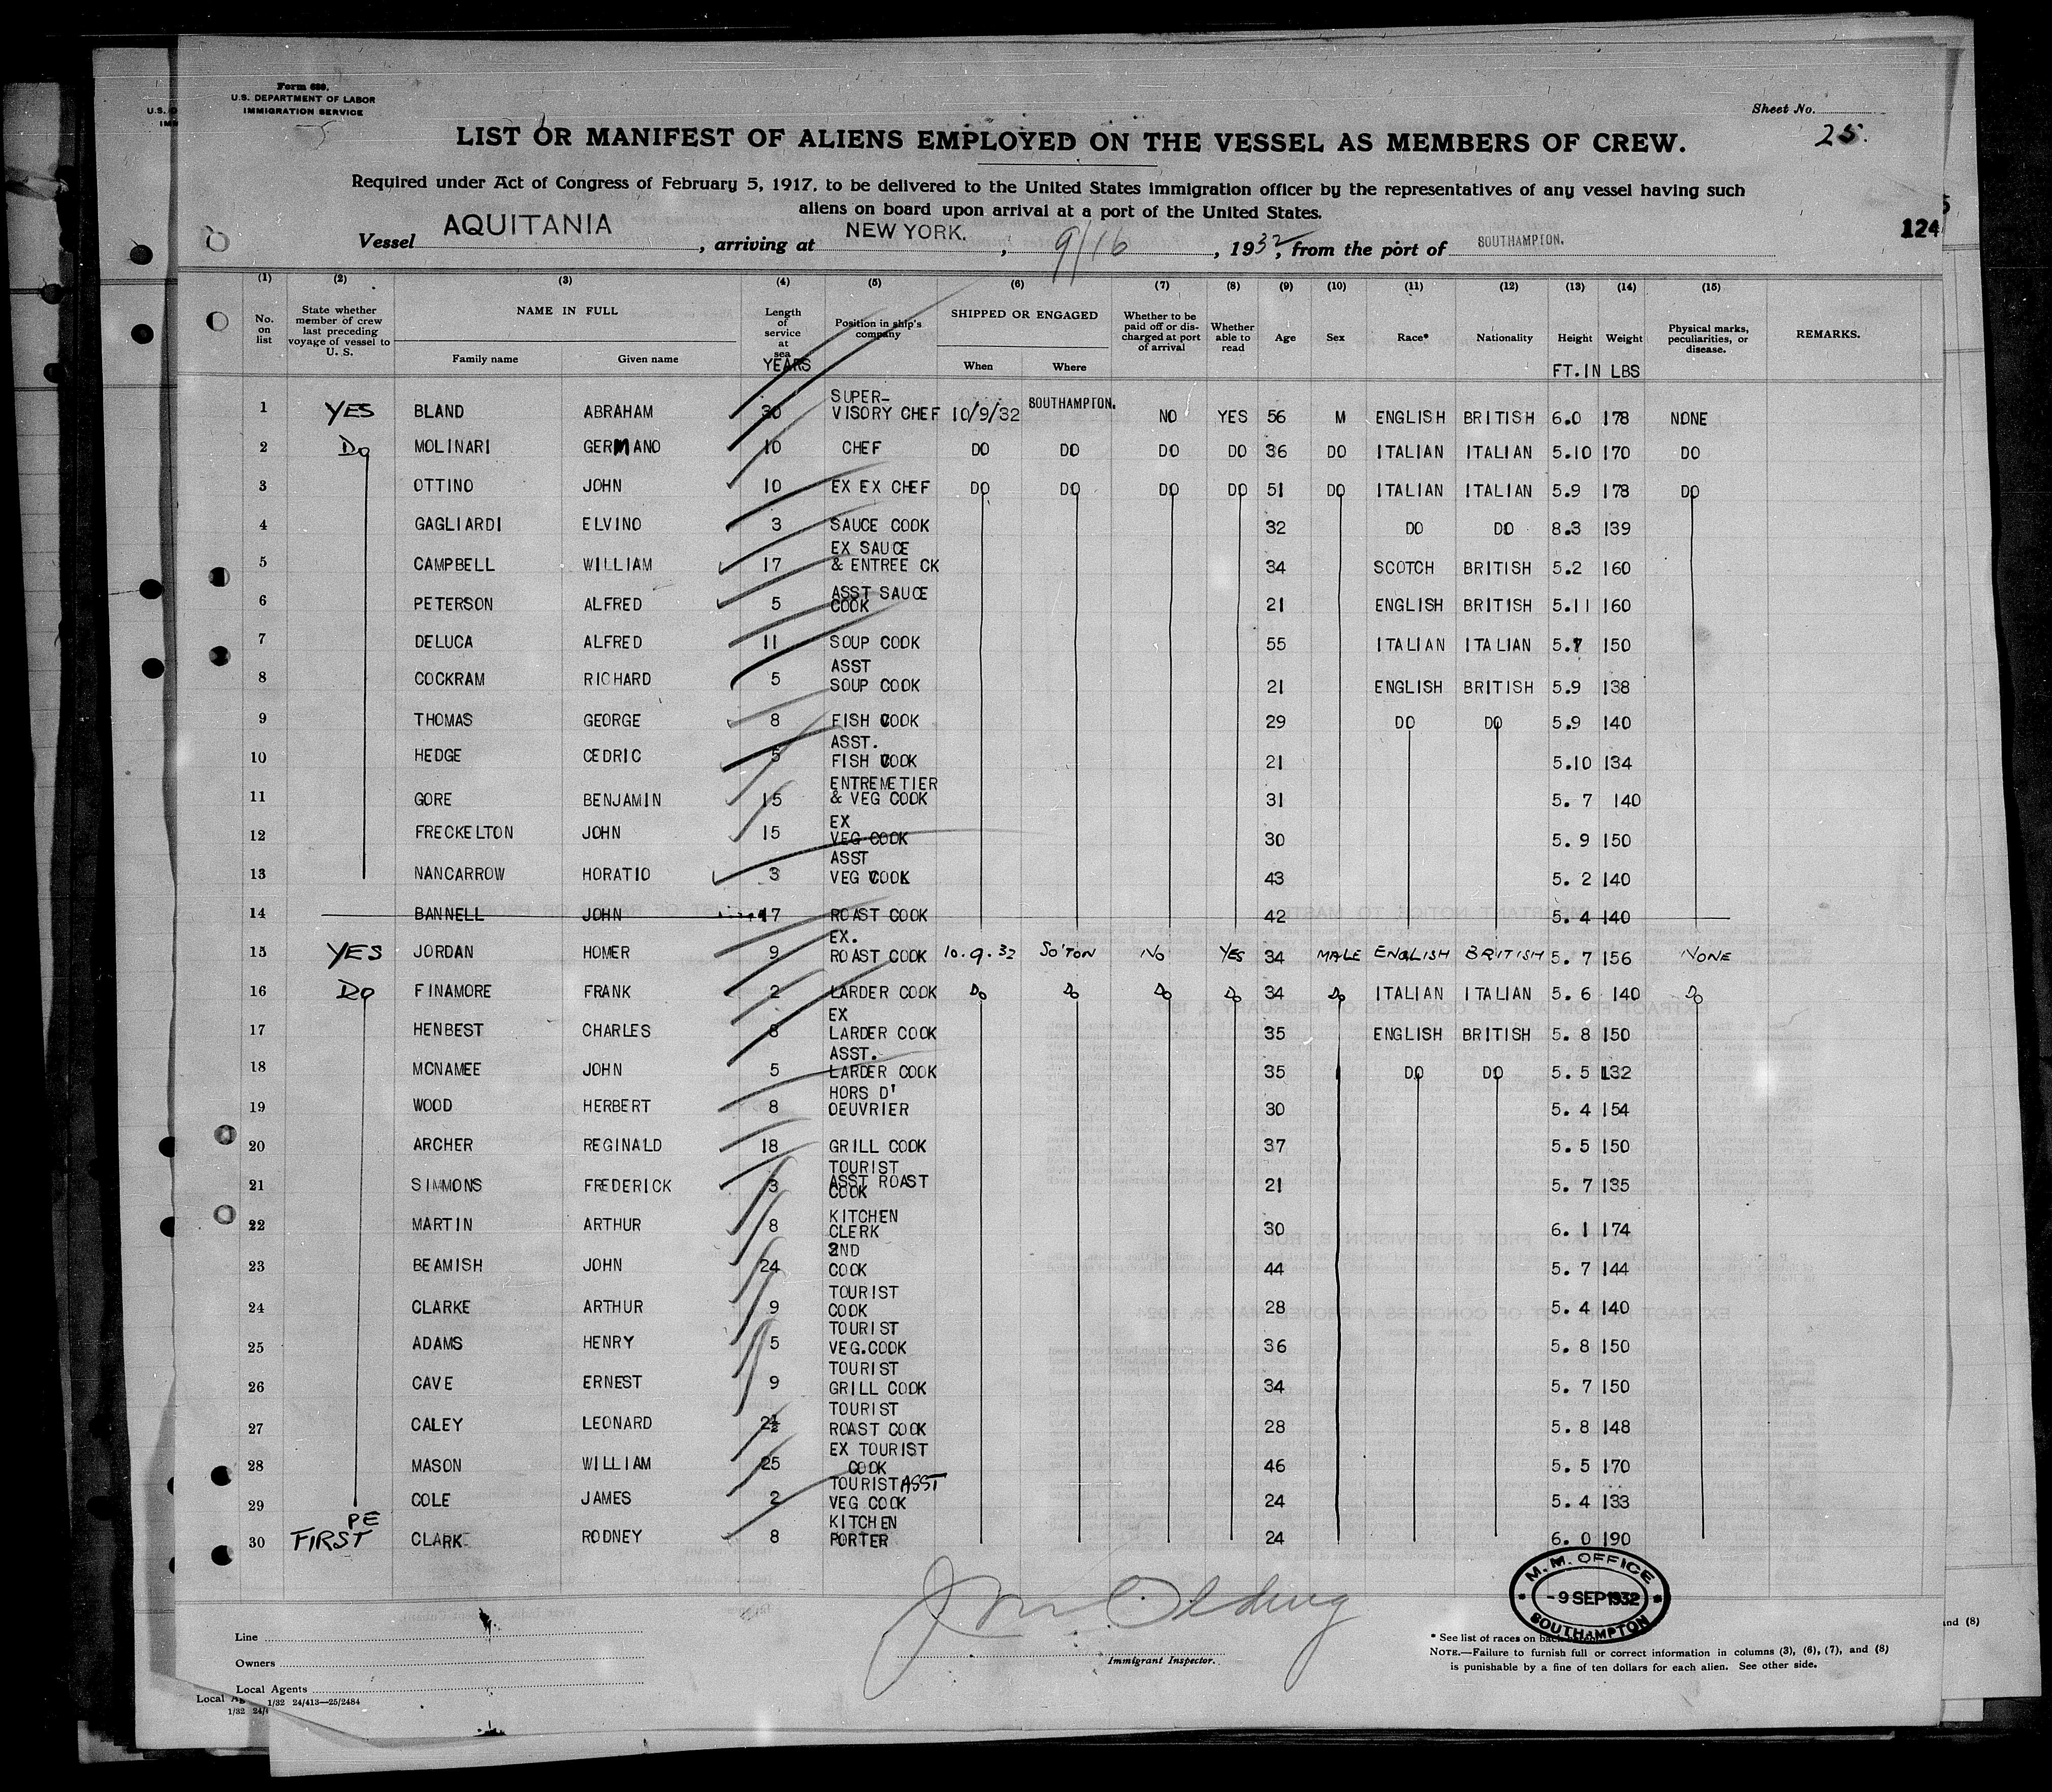 Form 680.
U.S. DEPARTMENT OF LABOR
IMMIGRATION SERVICE
Sheet No.
25.
LIST OR MANIFEST OF ALIENS EMPLOYED ON THE VESSEL AS MEMBERS OF CREW.
Required under Act of Congress of February 5, 1917, to be delivered to the United States immigration officer by the representatives of any vessel having such
aliens on board upon arrival at a port of the United States.
124
Vessel AQUITANIA, arriving at NEW YORK., 9/16, 1932, from the port of SOUTHAMPTON.
(1) (2) (3) (4) (5) (6) (7) (8) (9) (10) (11) (12) (13) (14) (15)
No. on list
State whether member of crew last preceding voyage of vessel to U. S.
NAME IN FULL
Family name Given name
Length of service at sea YEARS
Position in ship's company
SHIPPED OR ENGAGED
When Where
Whether to be paid off or discharged at port of arrival
Whether able to read
Age Sex Race* Nationality
Height FT.IN
Weight LBS
Physical marks, peculiarities, or disease.
REMARKS.
1 YES BLAND ABRAHAM 30 SUPER-VISORY CHEF 10/9/32 SOUTHAMPTON. NO YES 56 M ENGLISH BRITISH 6.0 178 NONE
2 Do MOLINARI GERMANO 10 CHEF DO DO DO DO 36 DO ITALIAN ITALIAN 5.10 170 DO
3 OTTINO JOHN 10 EX EX CHEF DO DO DO DO 51 DO ITALIAN ITALIAN 5.9 178 DO
4 GAGLIARDI ELVINO 3 SAUCE COOK 32 DO DO 8.3 139
5 CAMPBELL WILLIAM 17 EX SAUCE & ENTREE CK 34 SCOTCH BRITISH 5.2 160
6 PETERSON ALFRED 5 ASST SAUCE COOK 21 ENGLISH BRITISH 5.11 160
7 DELUCA ALFRED 11 SOUP COOK 55 ITALIAN ITALIAN 5.7 150
8 COCKRAM RICHARD 5 ASST SOUP COOK 21 ENGLISH BRITISH 5.9 138
9 THOMAS GEORGE 8 FISH COOK 29 DO DO 5.9 140
10 HEDGE CEDRIC 5 ASST. FISH COOK 21 5.10 134
11 GORE BENJAMIN 15 ENTREMETIER & VEG COOK 31 5. 7 140
12 FRECKELTON JOHN 15 EX VEG COOK 30 5. 9 150
13 NANCARROW HORATIO 3 ASST VEG COOK 43 5. 2 140
14 BANNELL JOHN 17 ROAST COOK 42 5. 4 140
15 YES JORDAN HOMER 9 EX. ROAST COOK 10.9.32 SO'TON NO YES 34 MALE ENGLISH BRITISH 5. 7 156 NONE
16 Do FINAMORE FRANK 2 LARDER COOK Do Do Do Do 34 Do ITALIAN ITALIAN 5. 6 140 Do
17 HENBEST CHARLES 8 EX LARDER COOK 35 ENGLISH BRITISH 5. 8 150
18 MCNAMEE JOHN 5 ASST. LARDER COOK 35 DO DO 5. 5 132
19 WOOD HERBERT 8 HORS D' OEUVRIER 30 5. 4 154
20 ARCHER REGINALD 18 GRILL COOK 37 5. 5 150
21 SIMMONS FREDERICK 3 TOURIST ASST ROAST COOK 21 5. 7 135
22 MARTIN ARTHUR 8 KITCHEN CLERK 30 6. 1 174
23 BEAMISH JOHN 24 2ND COOK 44 5. 7 144
24 CLARKE ARTHUR 9 TOURIST COOK 28 5. 4 140
25 ADAMS HENRY 5 TOURIST VEG.COOK 36 5. 8 150
26 CAVE ERNEST 9 TOURIST GRILL COOK 34 5. 7 150
27 CALEY LEONARD 2½ TOURIST ROAST COOK 28 5. 8 148
28 MASON WILLIAM 25 EX TOURIST COOK 46 5. 5 170
29 COLE JAMES 2 TOURIST ASST VEG COOK 24 5. 4 133
30 FIRST PE CLARK RODNEY 8 KITCHEN PORTER 24 6. 0 190
M. M. OFFICE
-9 SEP 1932
SOUTHAMPTON
Line
Owners
Local Agents
1/32 24/413—25/2484
Immigrant Inspector.
* See list of races on back
NOTE.—Failure to furnish full or correct information in columns (3), (6), (7), and (8)
is punishable by a fine of ten dollars for each alien. See other side.